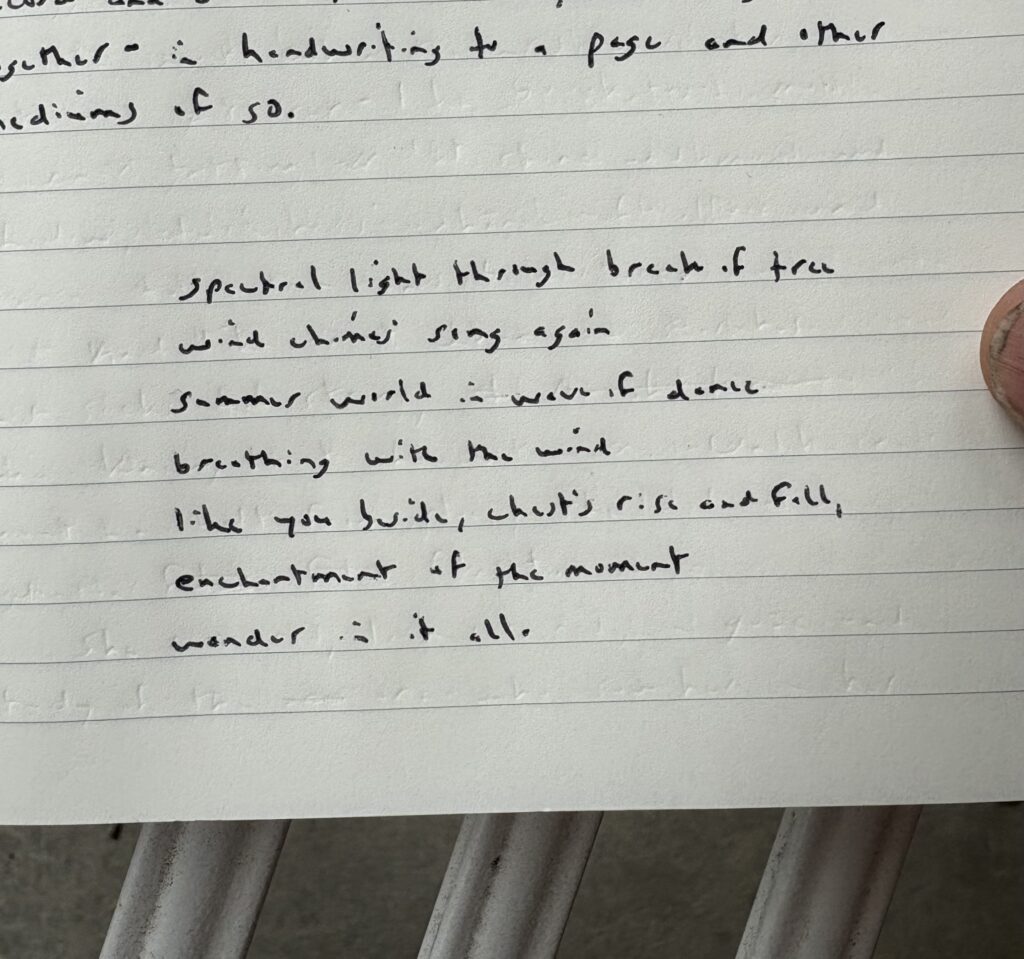 together - in handwriting to a page and other
mediums of so.
spectral light through break of tree
wind chimes' song again
summer world in wave of dance
breathing with the wind
like you beside, chest's rise and fall,
enchantment of the moment
wonder in it all.